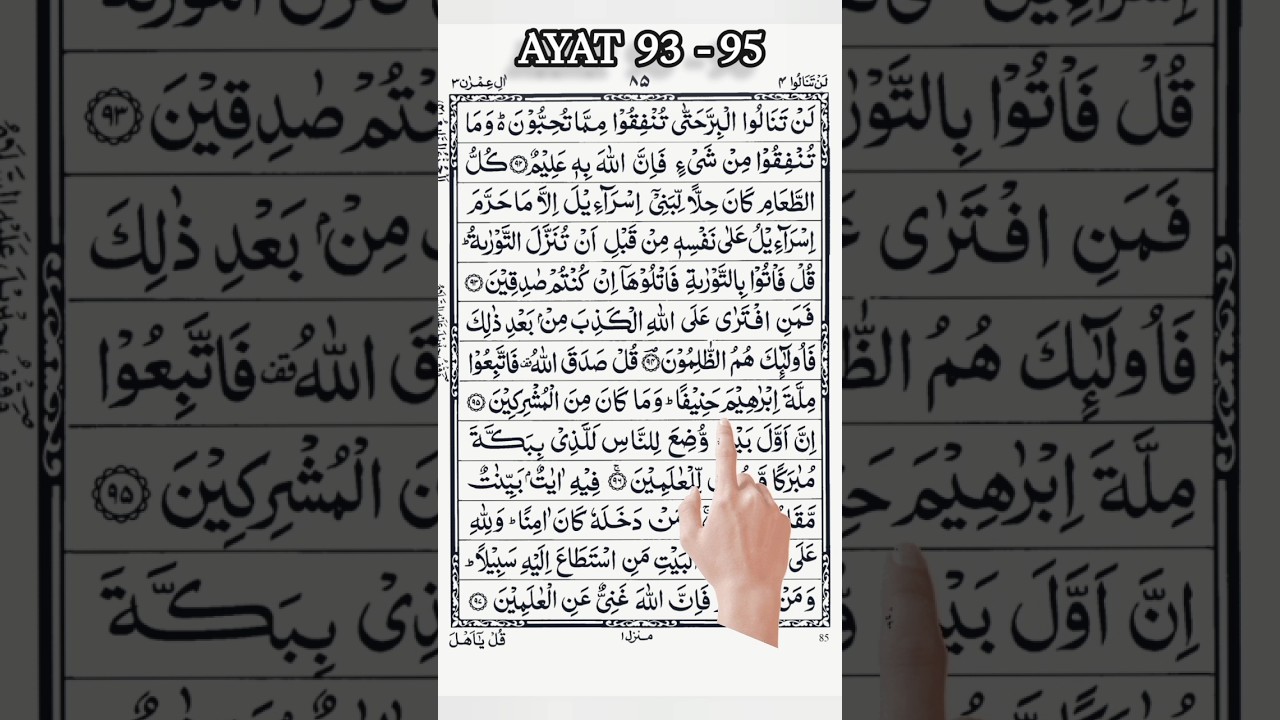 AYAT 93 - 95
لَنْ تَنَالُوا ۴
۸۵
اٰلِ عِمْرٰن ۳
لَنْ تَنَالُوا الْبِرَّ حَتّٰى تُنْفِقُوْا مِمَّا تُحِبُّوْنَ ؕ وَمَا
تُنْفِقُوْا مِنْ شَیْءٍ فَاِنَّ اللّٰهَ بِهٖ عَلِیْمٌ ۝۹۲ كُلُّ
الطَّعَامِ كَانَ حِلًّا لِّبَنِیْۤ اِسْرَآءِیْلَ اِلَّا مَا حَرَّمَ
اِسْرَآءِیْلُ عَلٰى نَفْسِهٖ مِنْ قَبْلِ اَنْ تُنَزَّلَ التَّوْرٰىةُ ؕ
قُلْ فَاْتُوْا بِالتَّوْرٰىةِ فَاتْلُوْهَاۤ اِنْ كُنْتُمْ صٰدِقِیْنَ ۝۹۳
فَمَنِ افْتَرٰى عَلَى اللّٰهِ الْكَذِبَ مِنْۢ بَعْدِ ذٰلِكَ
فَاُولٰٓىِٕكَ هُمُ الظّٰلِمُوْنَ ۝۹۴ قُلْ صَدَقَ اللّٰهُ فَاتَّبِعُوْا
مِلَّةَ اِبْرٰهِیْمَ حَنِیْفًا ؕ وَمَا كَانَ مِنَ الْمُشْرِكِیْنَ ۝۹۵
اِنَّ اَوَّلَ وُّضِعَ لِلنَّاسِ لَلَّذِیْ بِبَكَّةَ
مُبٰرَكًا لِّلْعٰلَمِیْنَ ۝۹۶ فِیْهِ اٰیٰتٌۢ بَیِّنٰتٌ
دَخَلَهٗ كَانَ اٰمِنًا ؕ وَلِلّٰهِ
عَلَى الْبَیْتِ مَنِ اسْتَطَاعَ اِلَیْهِ سَبِیْلًا ؕ
وَمَنْ فَاِنَّ اللّٰهَ غَنِیٌّ عَنِ الْعٰلَمِیْنَ ۝۹۷
قُلْ یٰۤاَهْلَ
منزل ۱
85